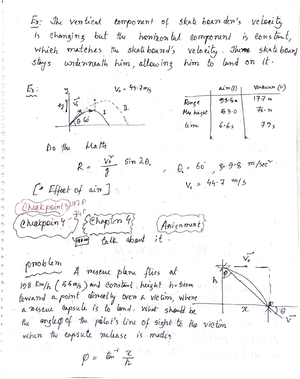 Ex: The vertical component of skateboarder's velocity
is changing but the horizontal component is constant,
which matches the skateboard's velocity. The skateboard
stays underneath him, allowing him to land on it.
Ex: V₀ = 44.7 m/s
y
I
II
60°
x
air (I) Vacuum (II)
Range 98.5 m 177 m
Max height 53.0 76 m
time 6.6 s 7.9 s
Do the Math
R = V₀²/g sin 2θ₀
θ₀ = 60°, g = 9.8 m/sec²
V₀ = 44.7 m/s
[* Effect of air]
Checkpoint 3) 72P
Checkpoint 4 Chapter 4 Assignment
talk about it
problem A rescue plane flies at
198 km/h (55 m/s) and constant height h = 500 m
toward a point directly over a victim, where
a rescue capsule is to land. What should be
the angle φ of the pilot's line of sight to the victim
when the capsule release is made
φ = tan⁻¹ x/h
V₀
φ
h
x
θ
V